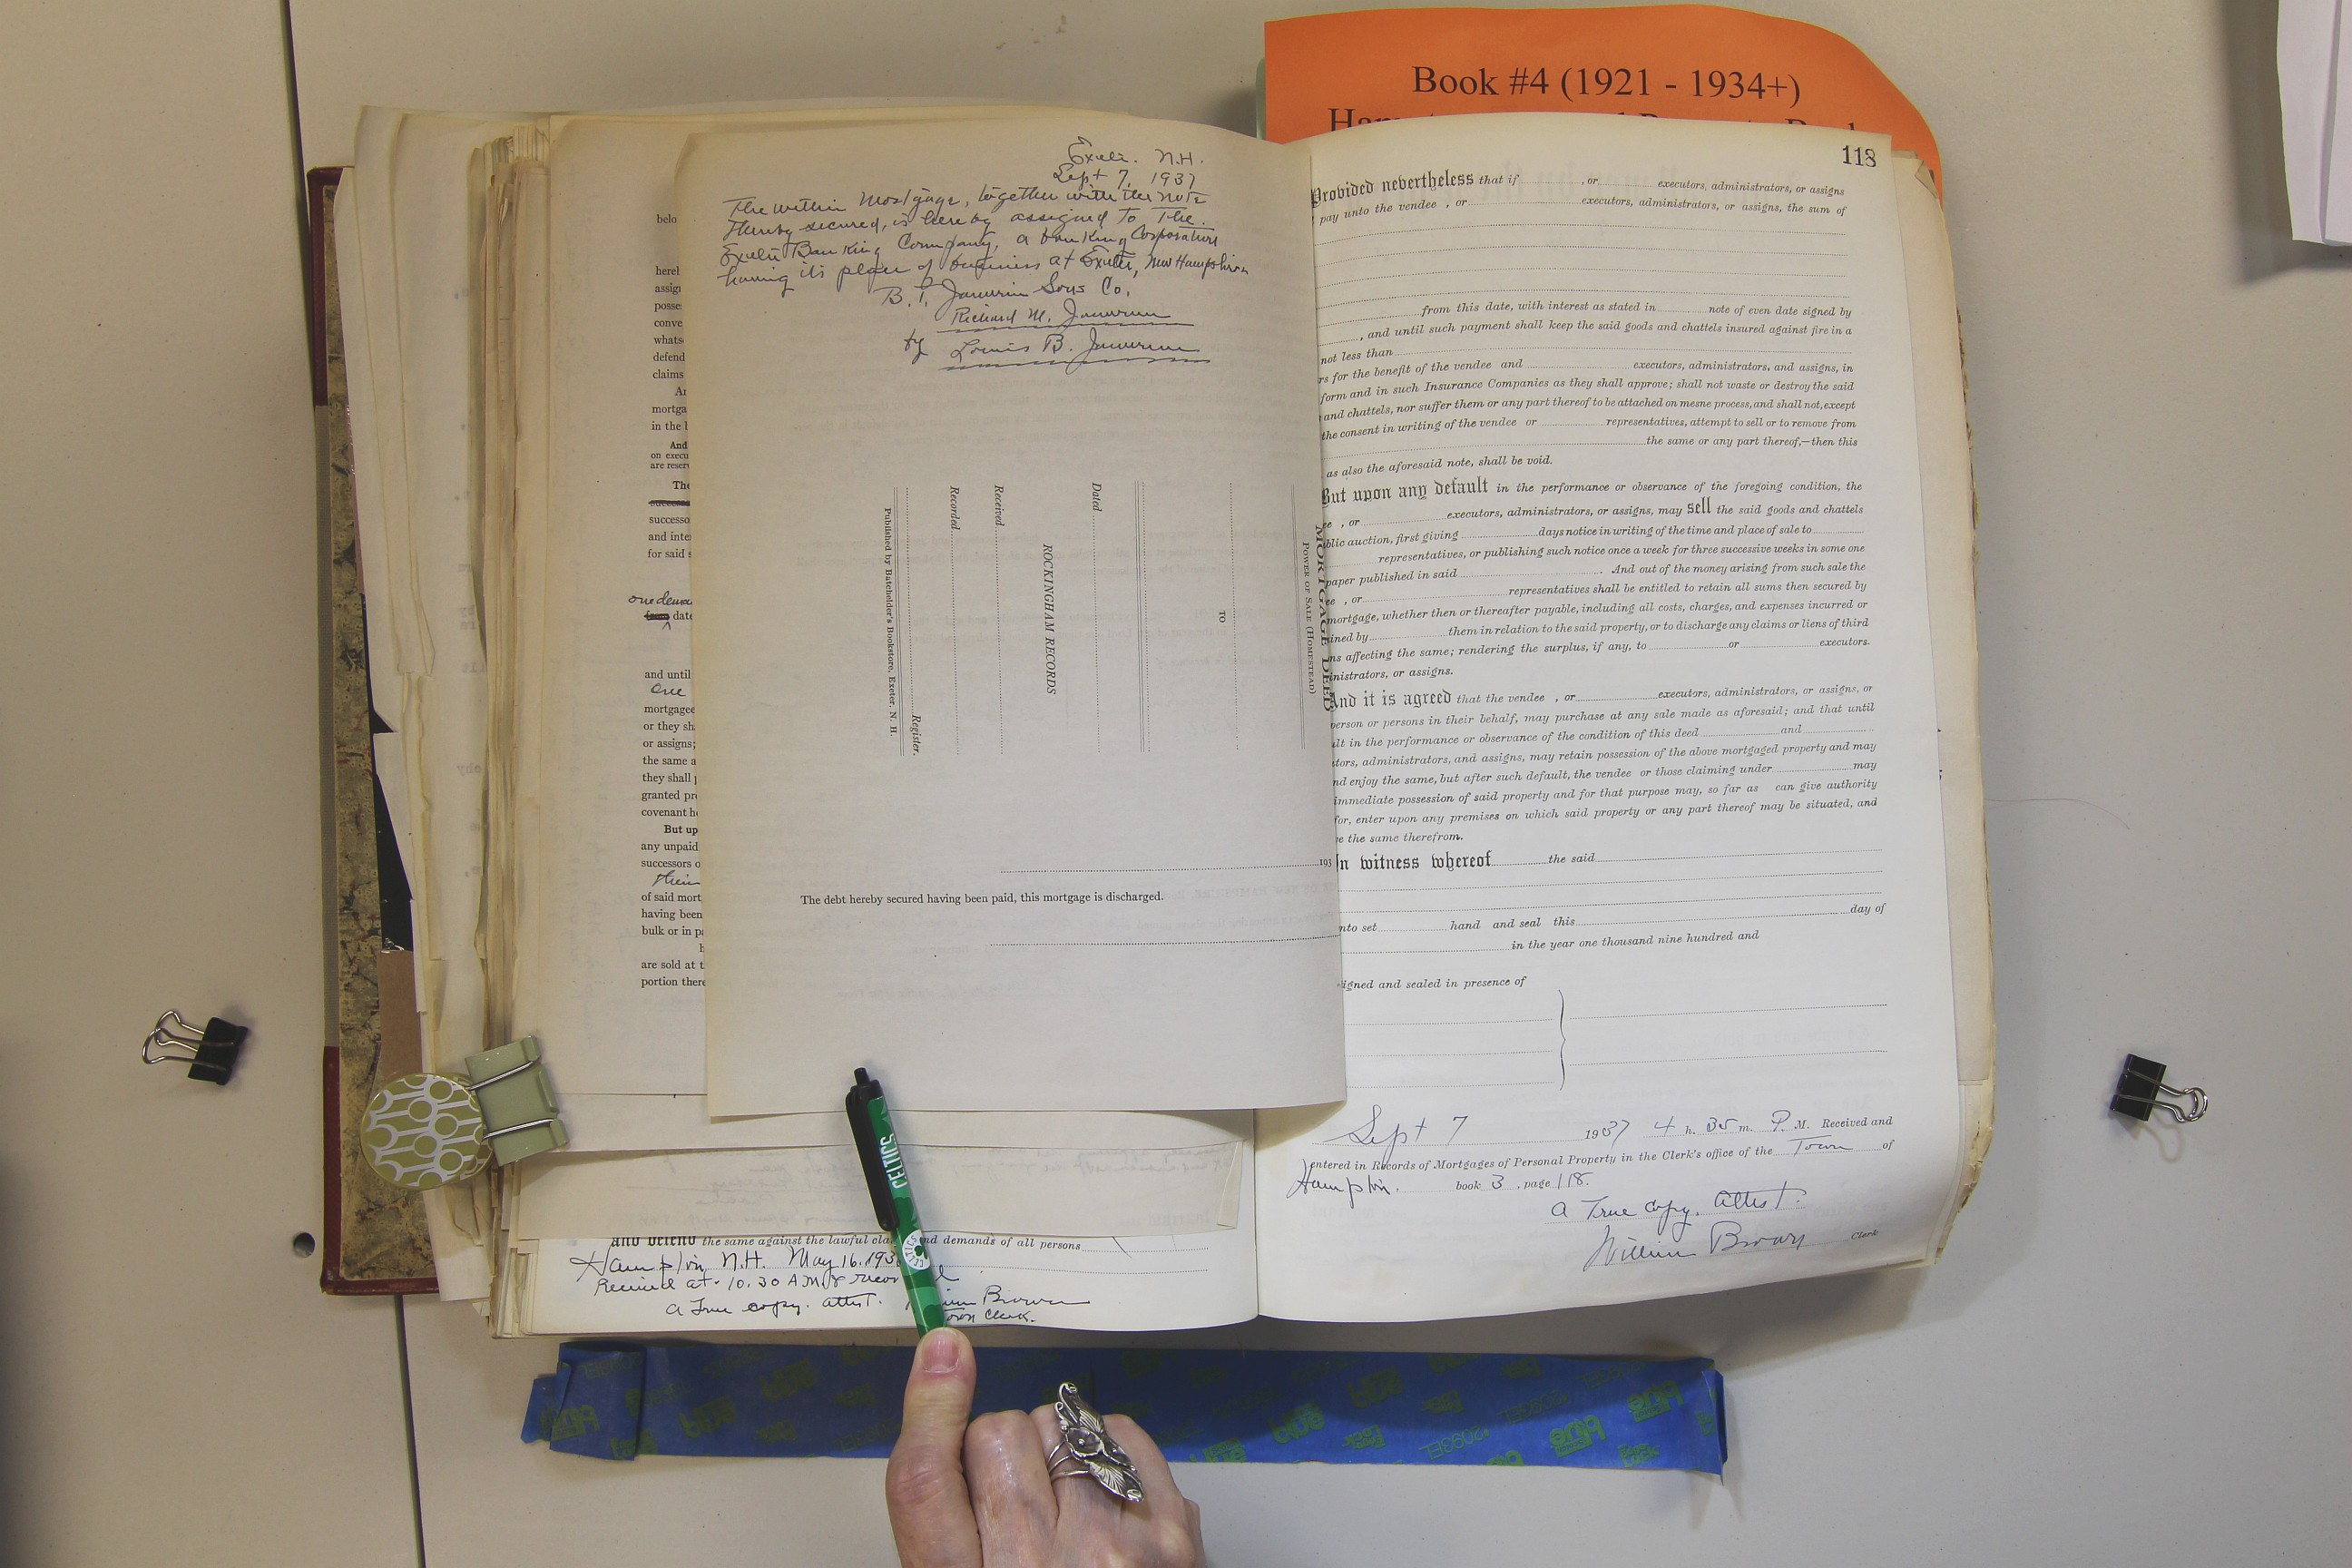 Book #4 (1921 - 1934+)
Exeter. N.H.
Sept 7, 1937
The within Mortgage, together with the note
thereby secured, is hereby assigned to The
Exeter Banking Company, a banking Corporation
having its place of business at Exeter, New Hampshire
B. F. Janvrin Sons Co.
Richard M. Janvrin
by Louis B. Janvrin
MORTGAGE DEED
POWER OF SALE (HOMESTEAD)
TO
Dated
ROCKINGHAM RECORDS
Received
Recorded
Register.
Published by Batchelder's Bookstore, Exeter, N. H.
193
The debt hereby secured having been paid, this mortgage is discharged.
belo
hereb
assig
posse
conve
whats
defend
claims
An
mortga
in the b
And
on execu
are reser
The
successo
and inte
for said s
one dema
date
and until
One
mortgagee
or they sha
or assigns;
the same a
they shall p
granted pre
covenant he
But up
any unpaid
successors o
their
of said mort
having been
bulk or in pa
h
are sold at t
portion there
and defend the same against the lawful cla nd demands of all persons
Hampton, N.H. May 16, 193
Received at 10.30 A.M. & recor
a True copy. attest. Brown
Town Clerk.
118
Provided nevertheless that if , or executors, administrators, or assigns
pay unto the vendee , or executors, administrators, or assigns, the sum of
from this date, with interest as stated in note of even date signed by
, and until such payment shall keep the said goods and chattels insured against fire in a
not less than
rs for the benefit of the vendee and executors, administrators, and assigns, in
form and in such Insurance Companies as they shall approve; shall not waste or destroy the said
and chattels, nor suffer them or any part thereof to be attached on mesne process, and shall not, except
the consent in writing of the vendee or representatives, attempt to sell or to remove from
the same or any part thereof,—then this
as also the aforesaid note, shall be void.
But upon any default in the performance or observance of the foregoing condition, the
ee , or executors, administrators, or assigns, may sell the said goods and chattels
blic auction, first giving days notice in writing of the time and place of sale to
representatives, or publishing such notice once a week for three successive weeks in some one
paper published in said . And out of the money arising from such sale the
ee , or representatives shall be entitled to retain all sums then secured by
mortgage, whether then or thereafter payable, including all costs, charges, and expenses incurred or
ined by them in relation to the said property, or to discharge any claims or liens of third
ns affecting the same; rendering the surplus, if any, to or executors.
inistrators, or assigns.
And it is agreed that the vendee , or executors, administrators, or assigns, or
person or persons in their behalf, may purchase at any sale made as aforesaid; and that until
ult in the performance or observance of the condition of this deed and
ators, administrators, and assigns, may retain possession of the above mortgaged property and may
nd enjoy the same, but after such default, the vendee or those claiming under may
immediate possession of said property and for that purpose may, so far as can give authority
for, enter upon any premises on which said property or any part thereof may be situated, and
ve the same therefrom.
In witness whereof the said
nto set hand and seal this day of
in the year one thousand nine hundred and
igned and sealed in presence of
Sept 7 1937 4 h. 35 m. P. M. Received and
entered in Records of Mortgages of Personal Property in the Clerk's office of the Town of
Hampton. book 3 , page 118.
a True copy. attest:
William Brown Clerk
CELTICS
CELTICS